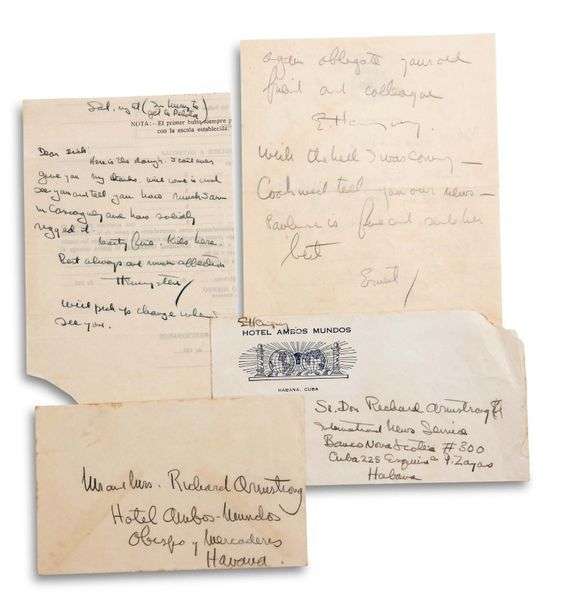 Sat. night (In hurry to
get to
NOTA:- El primer bulto siempre p
con la escala establecida
Dear Dick
Here is the dough. I can't ever
give you my thanks. Will come in and
see you and tell you how
in Camaguey and how solidly
rigged it.
fine. Kids here.
Best always and much affection
Hemingstein
Will pick up change when I
see you.
again obligate your old
friend and colleague
E. Hemingway.
With the hell I was coming -
Cock will tell you our news -
Pauline is fine and sends her
best
Ernest
E Hemingway
HOTEL AMBOS MUNDOS
HABANA, CUBA
Sr. Don Richard Armstrong
International News Service
Banco Nova Scotia # 300
Cuba 225 Esquina a P. Zayas
Habana
Mr and Mrs. Richard Armstrong
Hotel Ambos-Mundos
Obispo y Mercaderes
Havana.